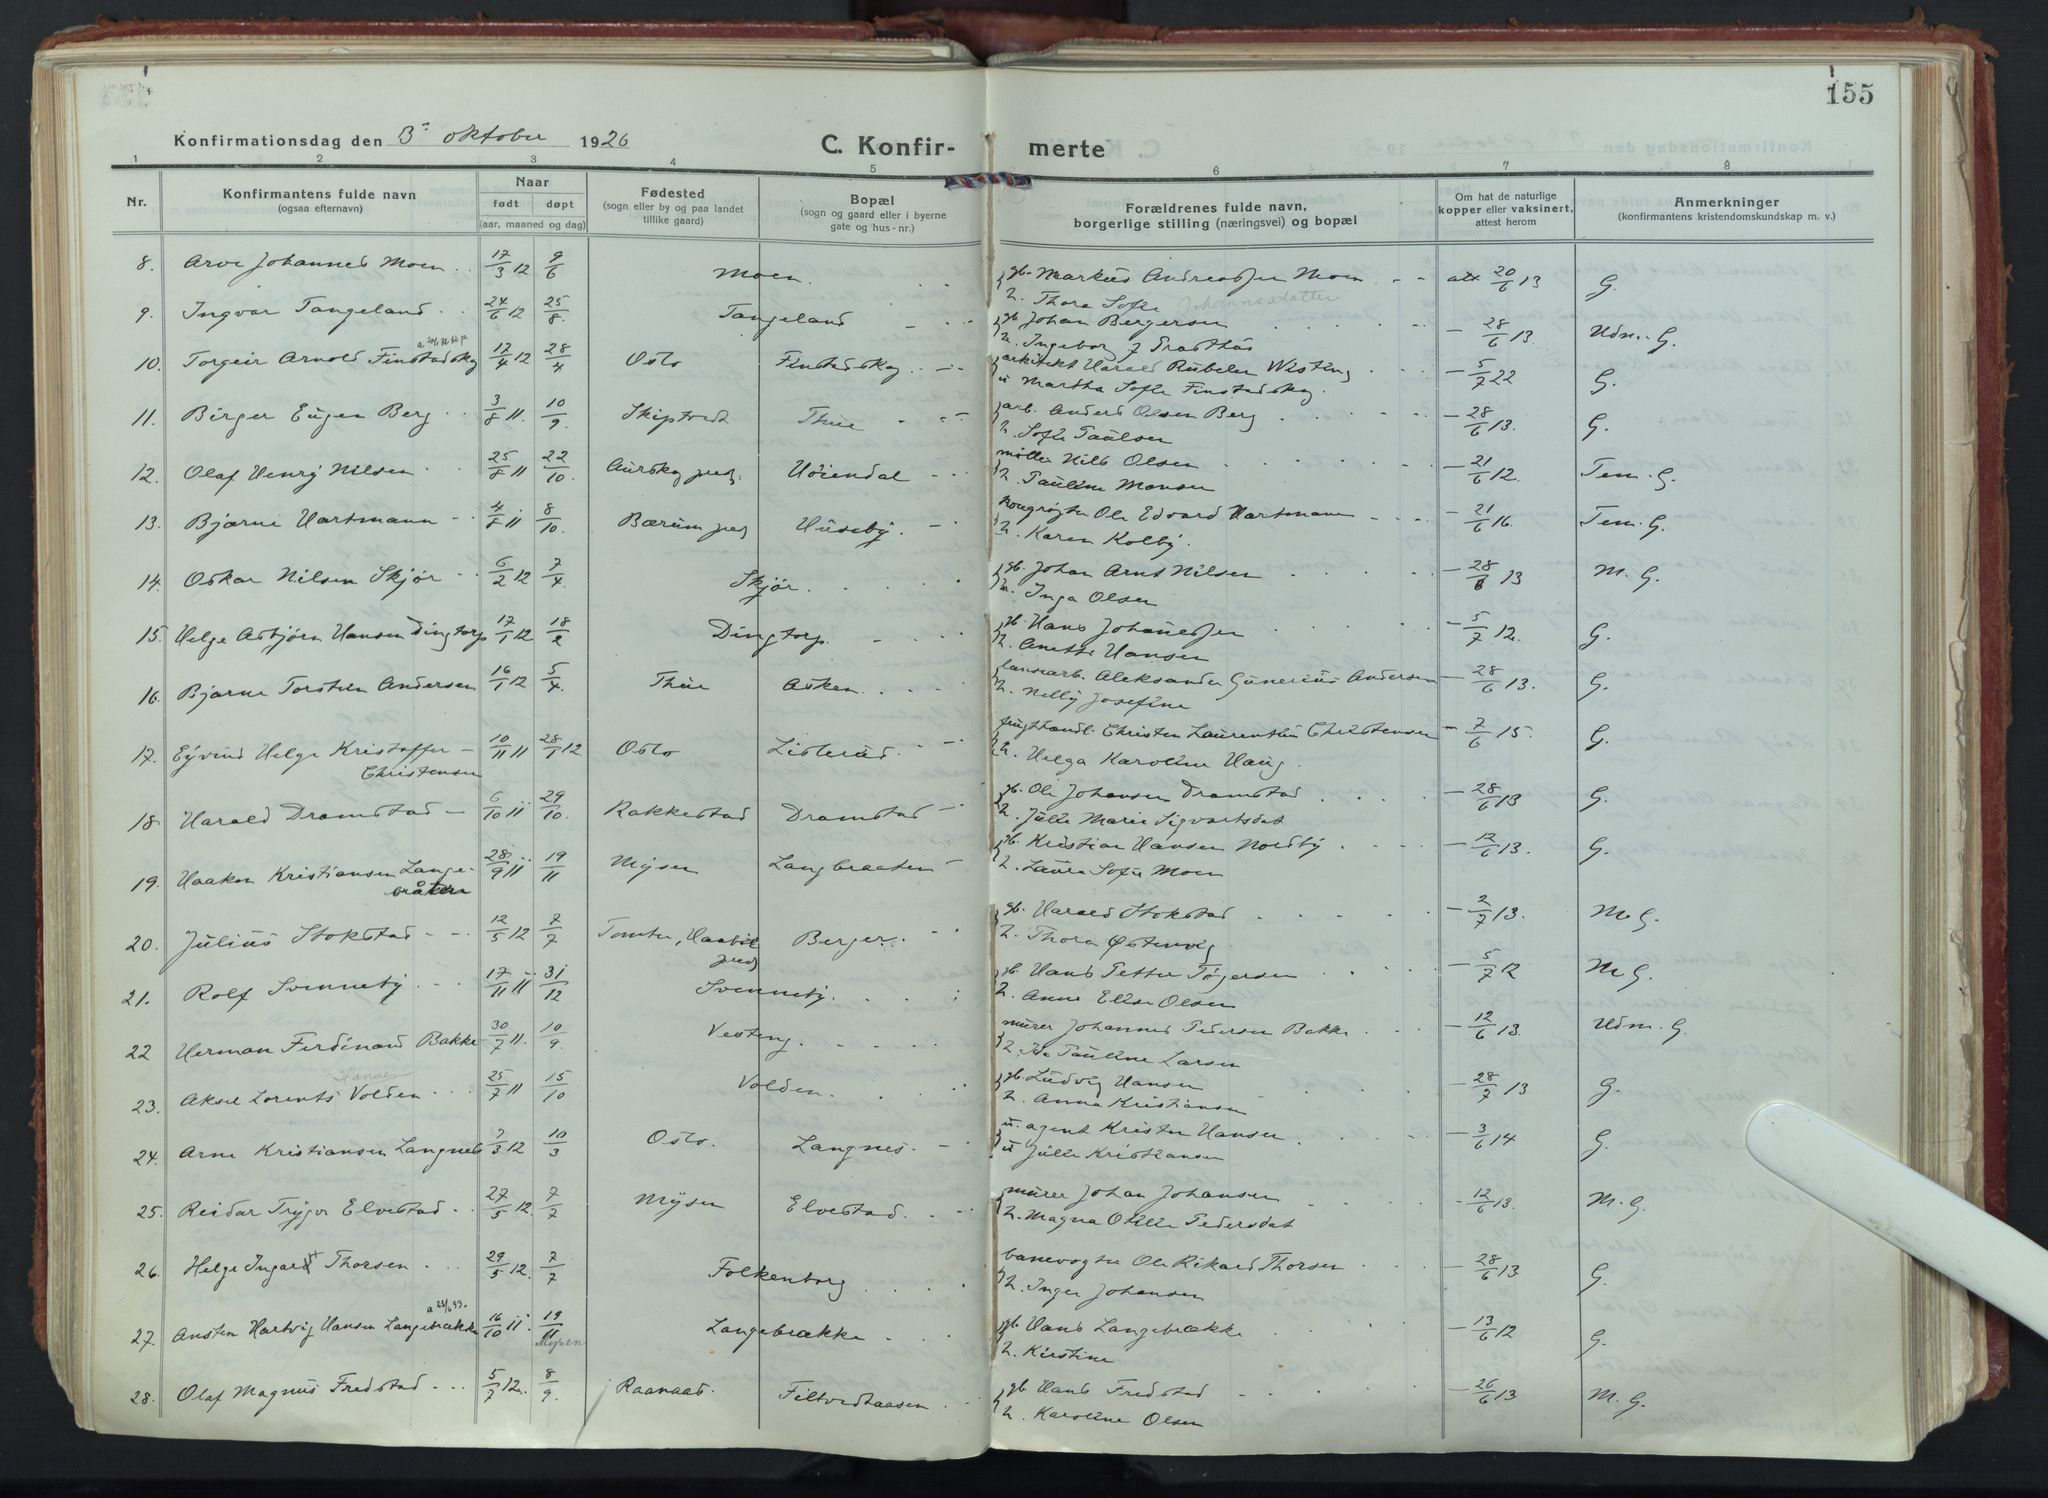 155
Konfirmationsdag den 3' oktober 1926
C. Konfir- merte
1 2 3 4 5 6 7 8
Nr. Konfirmantens fulde navn (ogsaa efternavn) Naar født døpt (aar, maaned og dag) Fødested (sogn eller by og paa landet tillike gaard) Bopæl (sogn og gaard eller i byerne gate og hus-nr.) Forældrenes fulde navn, borgerlige stilling (næringsvei) og bopæl Om hat de naturlige kopper eller vaksinert, attest herom Anmerkninger (konfirmantens kristendomskundskap m. v.)
8. Arve Johannes Moen 17/3 12 9/6 Moen. gb. Markus Andreassen Moen att 20/6 13 G.
h. Thora Sofie Johannesdatter
9. Ingvar Tangeland 24/6 12 25/8. Tangeland gb. Johan Bergersen 28/6 13. Udm. G.
h. Ingeborg J Prasthus
10. Torgeir Arnold Finstadskog 17/4 12 28/4 Oslo Finstadskog arkitekt Harald Rubeler Wisting 5/7 22 G.
u Martha Sofie Finstadskog.
11. Birger Eugen Berg 3/8 11. 10/9. Skiptvedt Thue arb. Anders Olsen Berg 28/6 13. G.
h. Sofie Paulsen
12. Olaf Henry Nilsen 25/8 11 22/10. Aurskog pred. Høiendal møller Nils Olsen 21/6 12. Tem. G.
h. Pauline Monsen
13. Bjarne Hartmann 4/8 11 8/10. Bærum pred Huseby. Ole Edvard Hartmann 21/6 16. Tem. G.
h. Karen Kolby.
14. Oskar Nilsen Skjør 6/2 12 7/4 Skjør. gb. Johan Arnt Nilsen 28/6 13 M. G.
h. Inga Olsen
15. Helge Asbjørn Hansen Dingtorp 17/1 12 18/2 Dingtorp. gb. Hans Johannessen 5/7 12. G.
h. Anette Hansen
16. Bjarne Torstein Andersen 16/1 12 5/4. Thue Asken. Aleksander Gunerius Andersen 28/6 13. G.
h. Nelly Josefine
17. Eyvind Helge Kristoffer Christensen 10/11 11 28/1 12 Oslo Listerud. Christen Laurentius Christensen 7/6 15. G.
h. Helga Karoline Haug.
18 Harald Dramstad 6/10 11 29/10. Rakkestad Dramstad gb. Ole Johansen Dramstad 28/6 13 G.
h. Julie Marie Sigvartsdat
19. Haakon Kristiansen Langebråten 28/9 11 19/11 Mysen Langbraaten gb. Kristian Hansen Nordby 12/6 13. G.
h. Laura Sofie Moen
20. Julius Stokstad 12/5 12 7/7 Tomter, Haabøl pred Berger. gb. Harald Stokstad 2/7 13. M. G.
h. Thora Østenvig
21. Rolf Svenneby 17/11 11 31/12 Svenneby. gb. Hans Petter Tøgersen 5/7 12 M G.
h. Anne Elise Olsen
22 Herman Ferdinand Bakke 30/7 11. 10/9. Vesteng. murer Johannes Pedersen Bakke 12/6 13. Udm. G.
h. Ida Pauline Larsen
23. Aksel Lorents Hansen Volden 25/7 11 15/10 Volden. gb. Ludvig Hansen 28/7 13 G.
h. Anna Kristiansen
24. Arne Kristiansen Langnes 7/3 12 10/3 Oslo. Langnes. u. agent Krister Hansen 3/6 14 G.
u Julie Kristiansen
25. Reidar Trygve Elvestad 27/5 12. 7/7 Mysen Elvestad. murer Johan Johansen 12/6 13. M. G.
h. Magna Otilie Pedersdat
26. Helge Ingard Thorsen 29/5 12. 7/7 Folkenborg banevogter Ole Rikard Thorsen 28/6 13 G.
h. Inger Johansen
27. Ansten Hartvig Hansen Langebrække a 23/6 33. 16/10 11. 19/11 Mysen Langebrække gb. Hans Langebrække 13/6 12 G.
h. Kirstine
28. Olaf Magnus Fredstad 5/7 12. 8/9. Raanaas. Filtvedtaasen gb. Hans Fredstad 26/6 13 M. G.
h. Karoline Olsen